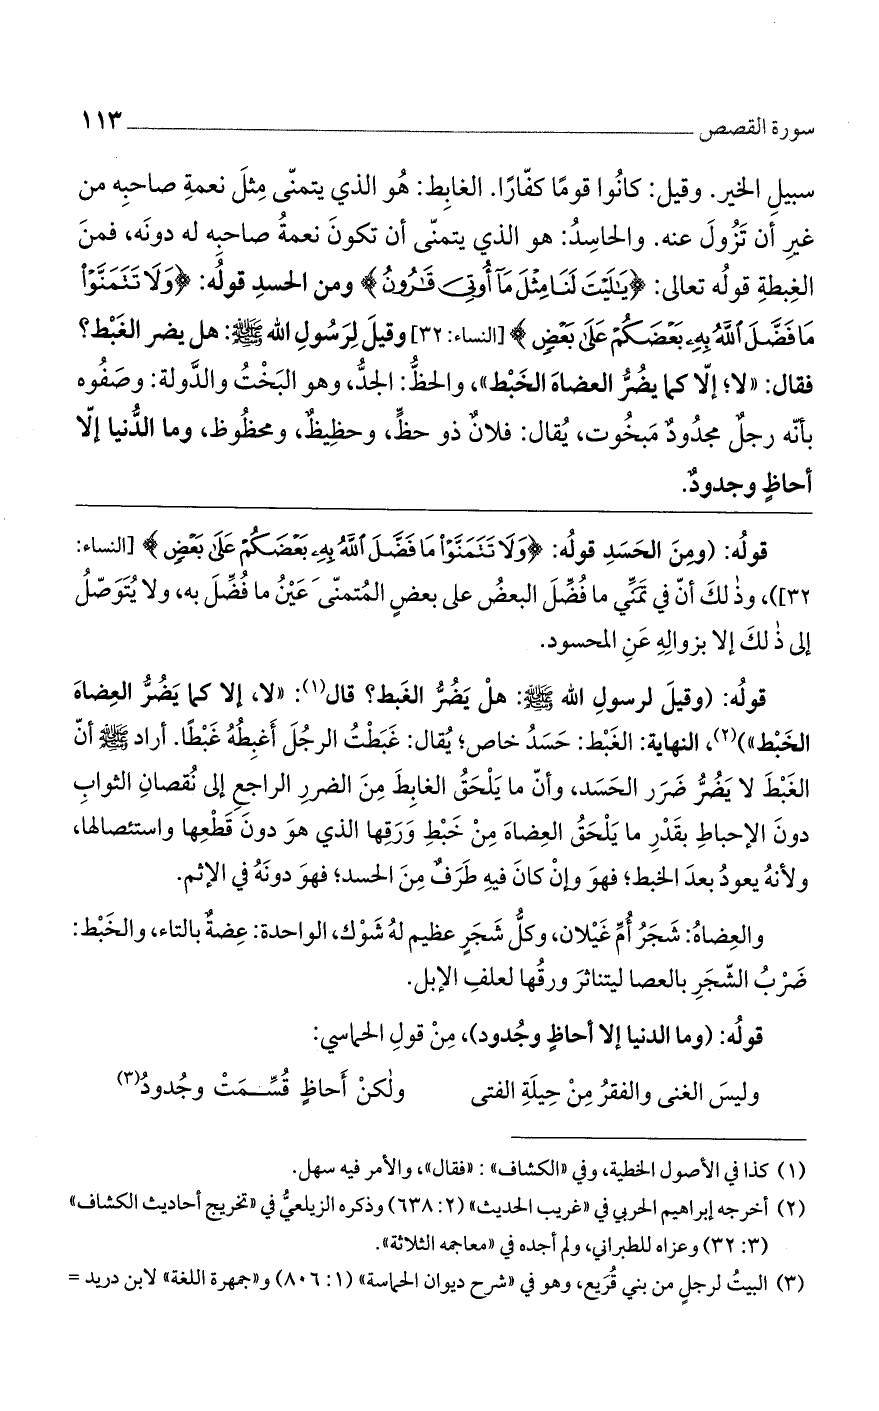 سورة القصص ١١٣
سبيلِ الخير. وقيل: كانُوا قومًا كفّارًا. الغابِط: هُو الذي يتمنّى مِثلَ نعمةِ صاحبِه من
غيرِ أن تَزُولَ عنه. والحاسِدُ: هو الذي يتمنّى أن تكونَ نعمةُ صاحبِه له دونَه، فمنَ
الغِبطةِ قولُه تعالى: ﴿يَٰلَيْتَ لَنَا مِثْلَ مَآ أُوتِىَ قَٰرُونُ﴾ ومن الحسدِ قولُه: ﴿وَلَا تَتَمَنَّوْا۟
مَا فَضَّلَ ٱللَّهُ بِهِۦ بَعْضَكُمْ عَلَىٰ بَعْضٍ﴾ [النساء: ٣٢] وقيلَ لِرَسُولِ الله ﷺ: هل يضر الغَبْط؟
فقال: «لا؛ إلّا كما يضُرُّ العضاهَ الخَبْط»، والحظُّ: الجدُّ، وهو البَخْتُ والدَّولة: وصَفُوه
بأنّه رجلٌ مجدُودٌ مَبخُوت، يُقال: فلانٌ ذو حظٍّ، وحظِيظٌ، ومحظُوظ، وما الدُّنيا إلّا
أحاظٍ وجدودٌ.
قولُه: (ومِنَ الحَسَدِ قولُه: ﴿وَلَا تَتَمَنَّوْا۟ مَا فَضَّلَ ٱللَّهُ بِهِۦ بَعْضَكُمْ عَلَىٰ بَعْضٍ﴾ [النساء:
٣٢])، وذٰلكَ أنّ في تَمَنِّي ما فُضِّلَ البعضُ على بعضٍ المُتمنّى عَيْنُ ما فُضِّلَ به، ولا يُتَوَصّلُ
إلى ذٰلكَ إلا بزوالِهِ عَنِ المحسود.
قولُه: (وقيلَ لرسولِ الله ﷺ: هلْ يَضُرُّ الغَبط؟ قال(١): «لا، إلا كما يَضُرُّ العِضاهَ
الخَبْط»)(٢)، النهاية: الغَبْط: حَسَدُ خاص؛ يُقال: غَبَطْتُ الرجُلَ أغبِطُهُ غَبْطًا. أراد ﷺ أنّ
الغَبْطَ لا يَضُرُّ ضَرَر الحَسَد، وأنّ ما يَلْحَقُ الغابِطَ مِنَ الضررِ الراجعِ إلى نُقصانِ الثوابِ
دونَ الإحباطِ بقَدْرِ ما يَلْحَقُ العِضاهَ مِنْ خَبْطِ وَرَقِها الذي هوَ دونَ قَطْعِها واستئصالها،
ولأنهُ يعودُ بعدَ الخبط؛ فهوَ وإنْ كانَ فيهِ طَرَفٌ مِنَ الحسد؛ فهوَ دونَهُ في الإثم.
والعِضاهُ: شَجَرُ أُمِّ غَيْلان، وكلُّ شَجَرٍ عظيم لهُ شَوْك، الواحدة: عِضةٌ بالتاء، والخَبْط:
ضَرْبُ الشّجَرِ بالعصا ليتناثرَ ورقُها لعلفِ الإبل.
قولُه: (وما الدنيا إلا أحاظٍ وجُدود)، مِنْ قولِ الحماسي:
وليسَ الغنى والفقرُ مِنْ حِيلَةِ الفتى ولٰكنْ أَحاظٍ قُسِّمَتْ وجُدودُ(٣)
(١) كذا في الأصول الخطية، وفي «الكشاف» : «فقال»، والأمر فيه سهل.
(٢) أخرجه إبراهيم الحربي في «غريب الحديث» (٢: ٦٣٨) وذكره الزيلعيُّ في «تخريج أحاديث الكشاف»
(٣: ٣٢) وعزاه للطبراني، ولم أجده في «معاجمه الثلاثة».
(٣) البيتُ لرجلٍ من بني قُرَيع، وهو في «شرح ديوان الحماسة» (١: ٨٠٦) و«جمهرة اللغة» لابن دريد =